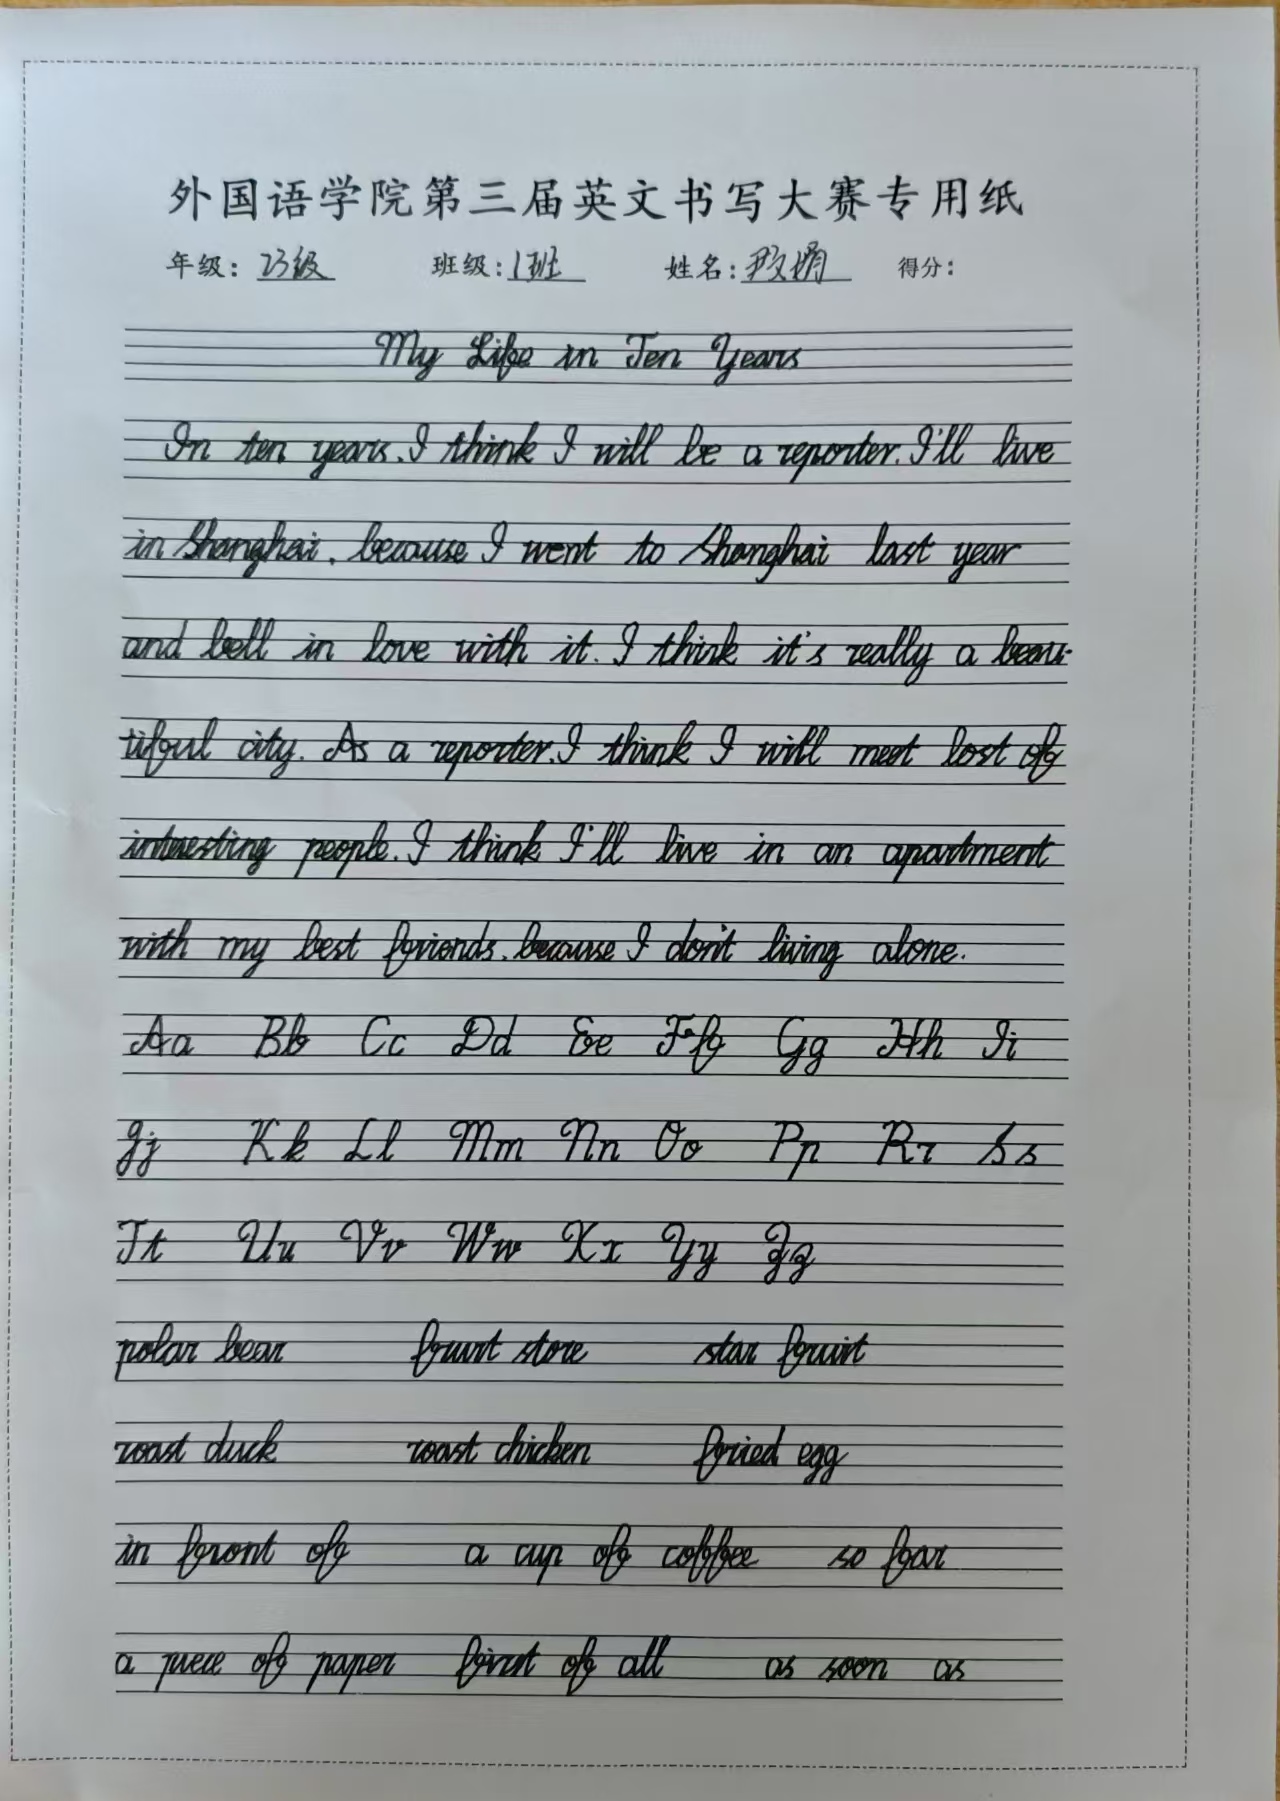 外国语学院第三届英文书写大赛专用纸
年级: 23级 班级: 1班 姓名: 得分:
My Life in Ten Years
In ten years. I think I will be a reporter. I'll live
in Shanghai. because I went to Shanghai last year
and fell in love with it. I think it's really a beau-
tiful city. As a reporter. I think I will meet lost of
interesting people. I think I'll live in an apartment
with my best friends. because I don't living alone.
Aa Bb Cc Dd Ee Ff Gg Hh Ii
Jj Kk Ll Mm Nn Oo Pp Rr Ss
Tt Uu Vv Ww Xx Yy Zz
polar bear fruit store star fruit
roast duck roast chicken fried egg
in front of a cup of coffee so far
a piece of paper first of all as soon as